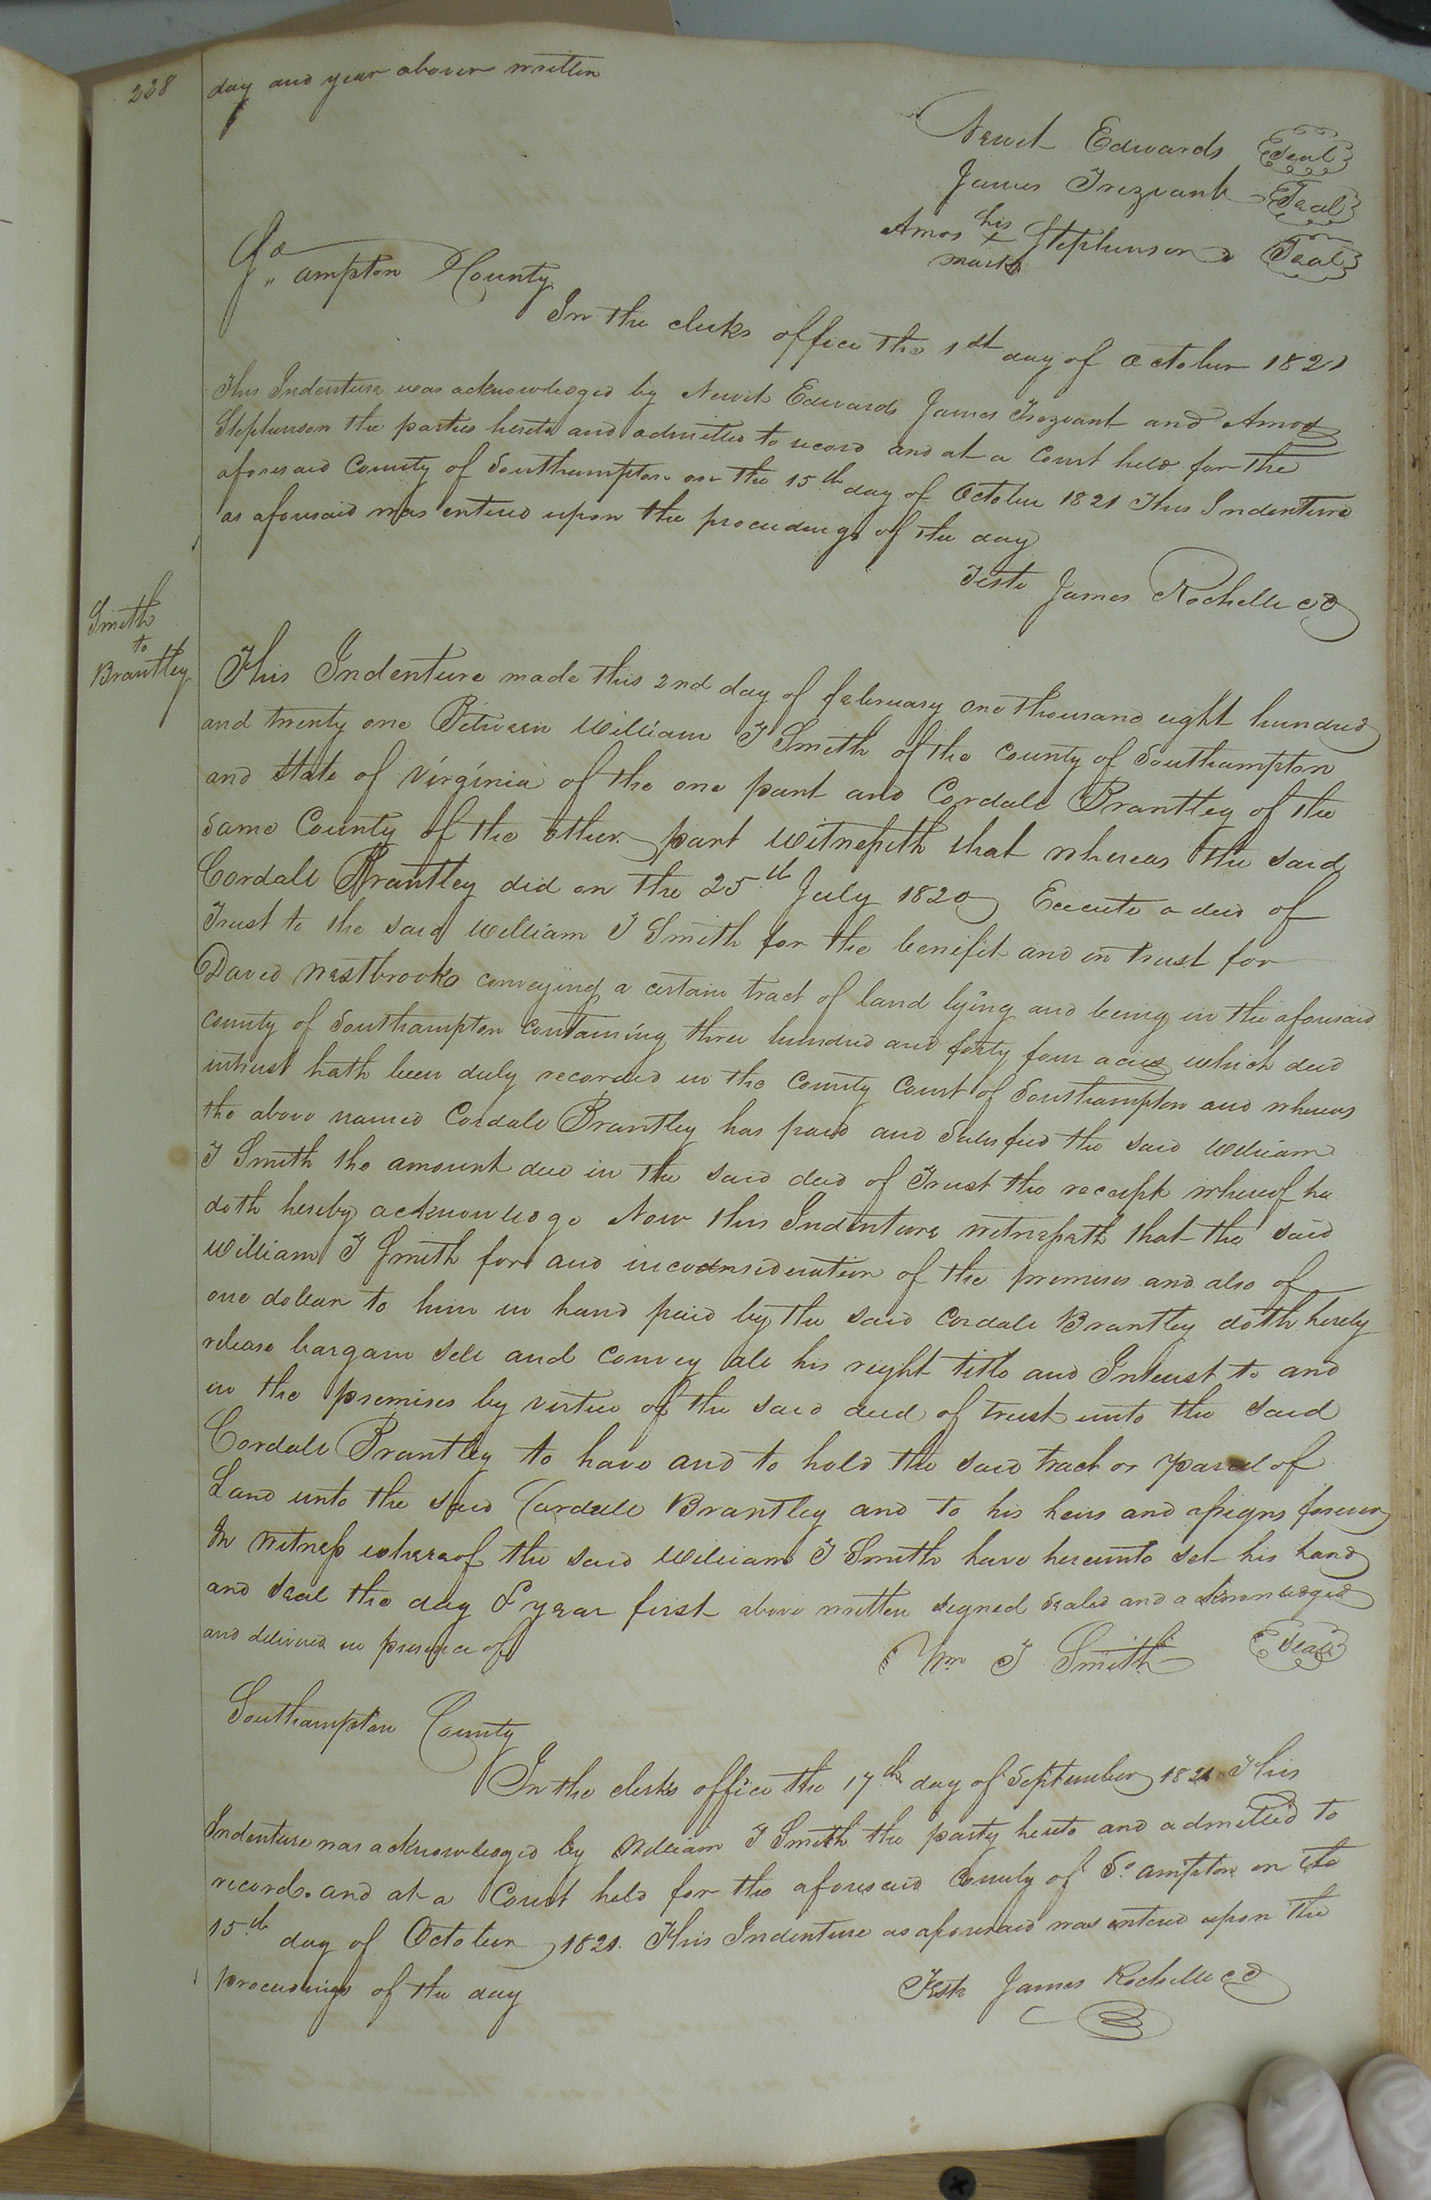 228
day and year above written
Newit Edwards Seal
James Trezvant Seal
Amos his + mark Stephenson Seal
So ampton County
In the clerks office the 1st day of October 1821
This Indenture was acknowledged by Newit Edwards James Trezvant and Amos
Stephenson the parties hereto and admitted to record and at a Court held for the
aforesaid County of Southampton on the 15th day of October 1821 This Indenture
as aforesaid was entered upon the proceedings of the day
Teste James Rochelle CC
Smith
to
Brantley
This Indenture made this 2nd day of february one thousand eight hundred
and twenty one Between William T Smith of the county of Southampton
and State of Virginia of the one part and Cordale Brantley of the
same County of the other part Witnesseth that whereas the said
Cordall Brantley did on the 25th July 1820 Execute a deed of
Trust to the said William T Smith for the benifit and in trust for
David Westbrook conveying a certain tract of land lying and being in the aforesaid
county of Southampton containing three hundred and forty four acres which deed
intrust hath been duly recorded in the County Court of Southampton and whereas
the above named Cordale Brantley has paid and Satisfied the said William
T Smith the amount due in the said deed of Trust the receipt whereof he
doth hereby acknowledge Now this Indenture witnesseth that the said
William T Smith for and inconsideration of the premises and also of
one dollar to him in hand paid by the said Cordale Brantley doth hereby
release bargain sell and convey all his right title and Interest to and
in the premises by virtue of the said deed of trust unto the said
Cordale Brantley to have and to hold the said tract or parcel of
Land unto the said Cordale Brantley and to his heirs and assigns forever
In Witness whereof the said William T Smith have hereunto set his hand
and seal the day & year first above written signed sealed and acknowledged
and delivered in presence of
Wm T Smith Seal
Southampton County
In the clerks office the 17th day of September 1821 This
Indenture was acknowledged by William T Smith the party hereto and admitted to
record. and at a Court held for the aforesaid County of So ampton on the
15th day of October 1821. This Indenture as aforesaid was entered upon the
proceedings of the day
Teste James Rochelle CC